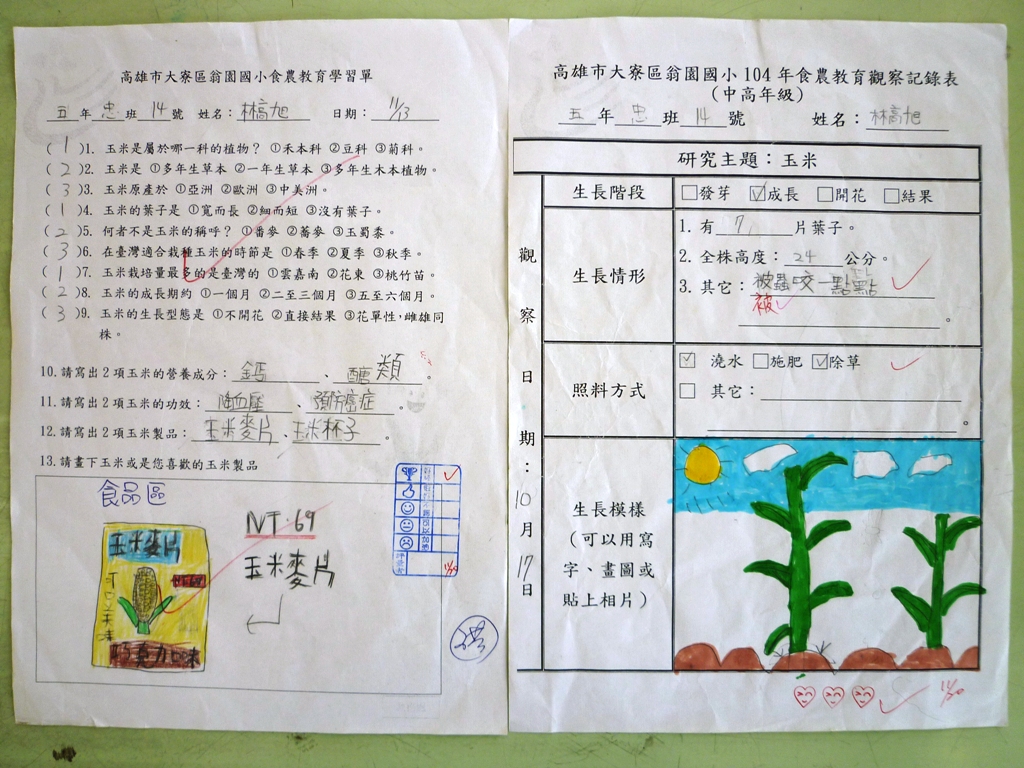 高雄市大寮區翁園國小食農教育學習單
五年忠班14號 姓名：林高旭 日期：11/13
(1)1. 玉米是屬於哪一科的植物？ ①禾本科 ②豆科 ③菊科。
(2)2. 玉米是 ①多年生草本 ②一年生草本 ③多年生木本植物。
(3)3. 玉米原產於 ①亞洲 ②歐洲 ③中美洲。
(1)4. 玉米的葉子是 ①寬而長 ②細而短 ③沒有葉子。
(2)5. 何者不是玉米的稱呼？ ①番麥 ②蕎麥 ③玉蜀黍。
(3)6. 在臺灣適合栽種玉米的時節是 ①春季 ②夏季 ③秋季。
(1)7. 玉米栽培量最多的是臺灣的 ①雲嘉南 ②花東 ③桃竹苗。
(2)8. 玉米的成長期約 ①一個月 ②二至三個月 ③五至六個月。
(3)9. 玉米的生長型態是 ①不開花 ②直接結果 ③花單性，雌雄同
株。
10.請寫出2項玉米的營養成分：鈣、醣類。
11.請寫出2項玉米的功效：降血壓、預防癌症。
12.請寫出2項玉米製品：玉米麥片、玉米杯子。
13.請畫下玉米或是您喜歡的玉米製品
食品區
玉米麥片
NT.69
巧克力口味
NT.69
玉米麥片
高雄市大寮區翁園國小104年食農教育觀察記錄表
(中高年級)
五年忠班14號 姓名：林高旭
研究主題：玉米
觀察日期：10月17日
生長階段 □發芽 ☑成長 □開花 □結果
生長情形
1. 有7片葉子。
2. 全株高度：24公分。
3. 其它：被蟲咬一點點
被
。
照料方式
☑ 澆水 □施肥 ☑除草
□ 其它：
。
生長模樣
(可以用寫
字、畫圖或
貼上相片)
11/20